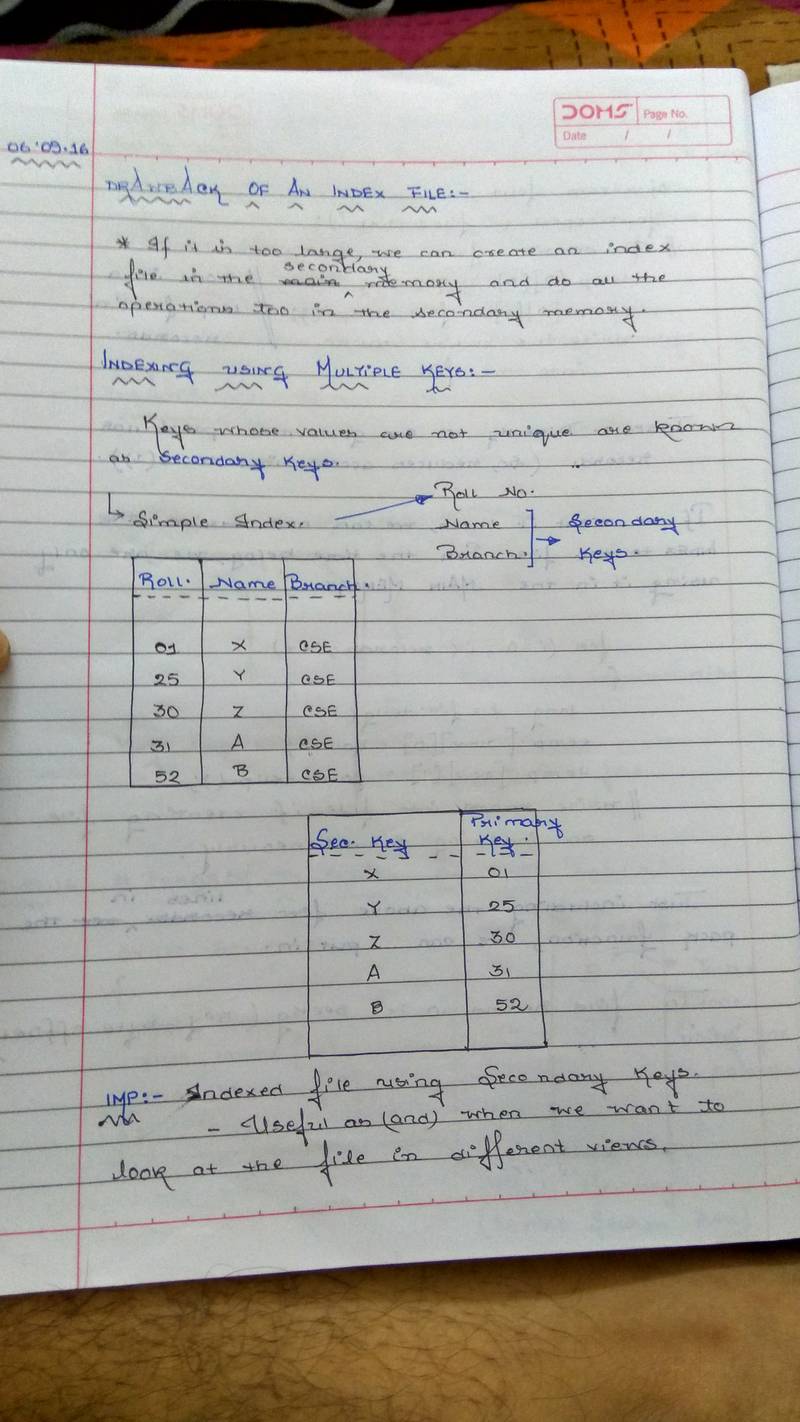 DOMS Page No.
Date / /
06.09.16
DRAWBACK OF AN INDEX FILE:-
* If it is too large, we can create an index
file in the main secondary memory and do all the
operations too in the secondary memory.
INDEXING USING MULTIPLE KEYS:-
Keys whose values are not unique are known
as Secondary Keys.
Roll No.
↳ Simple Index. Name Secondary
Branch. Keys.
Roll. Name Branch.
01 X CSE
25 Y CSE
30 Z CSE
31 A CSE
52 B CSE
Primary
Sec. Key Key.
X 01
Y 25
Z 30
A 31
B 52
IMP:- Indexed file using Secondary Keys.
- Useful as (and) when we want to
look at the file in different views.